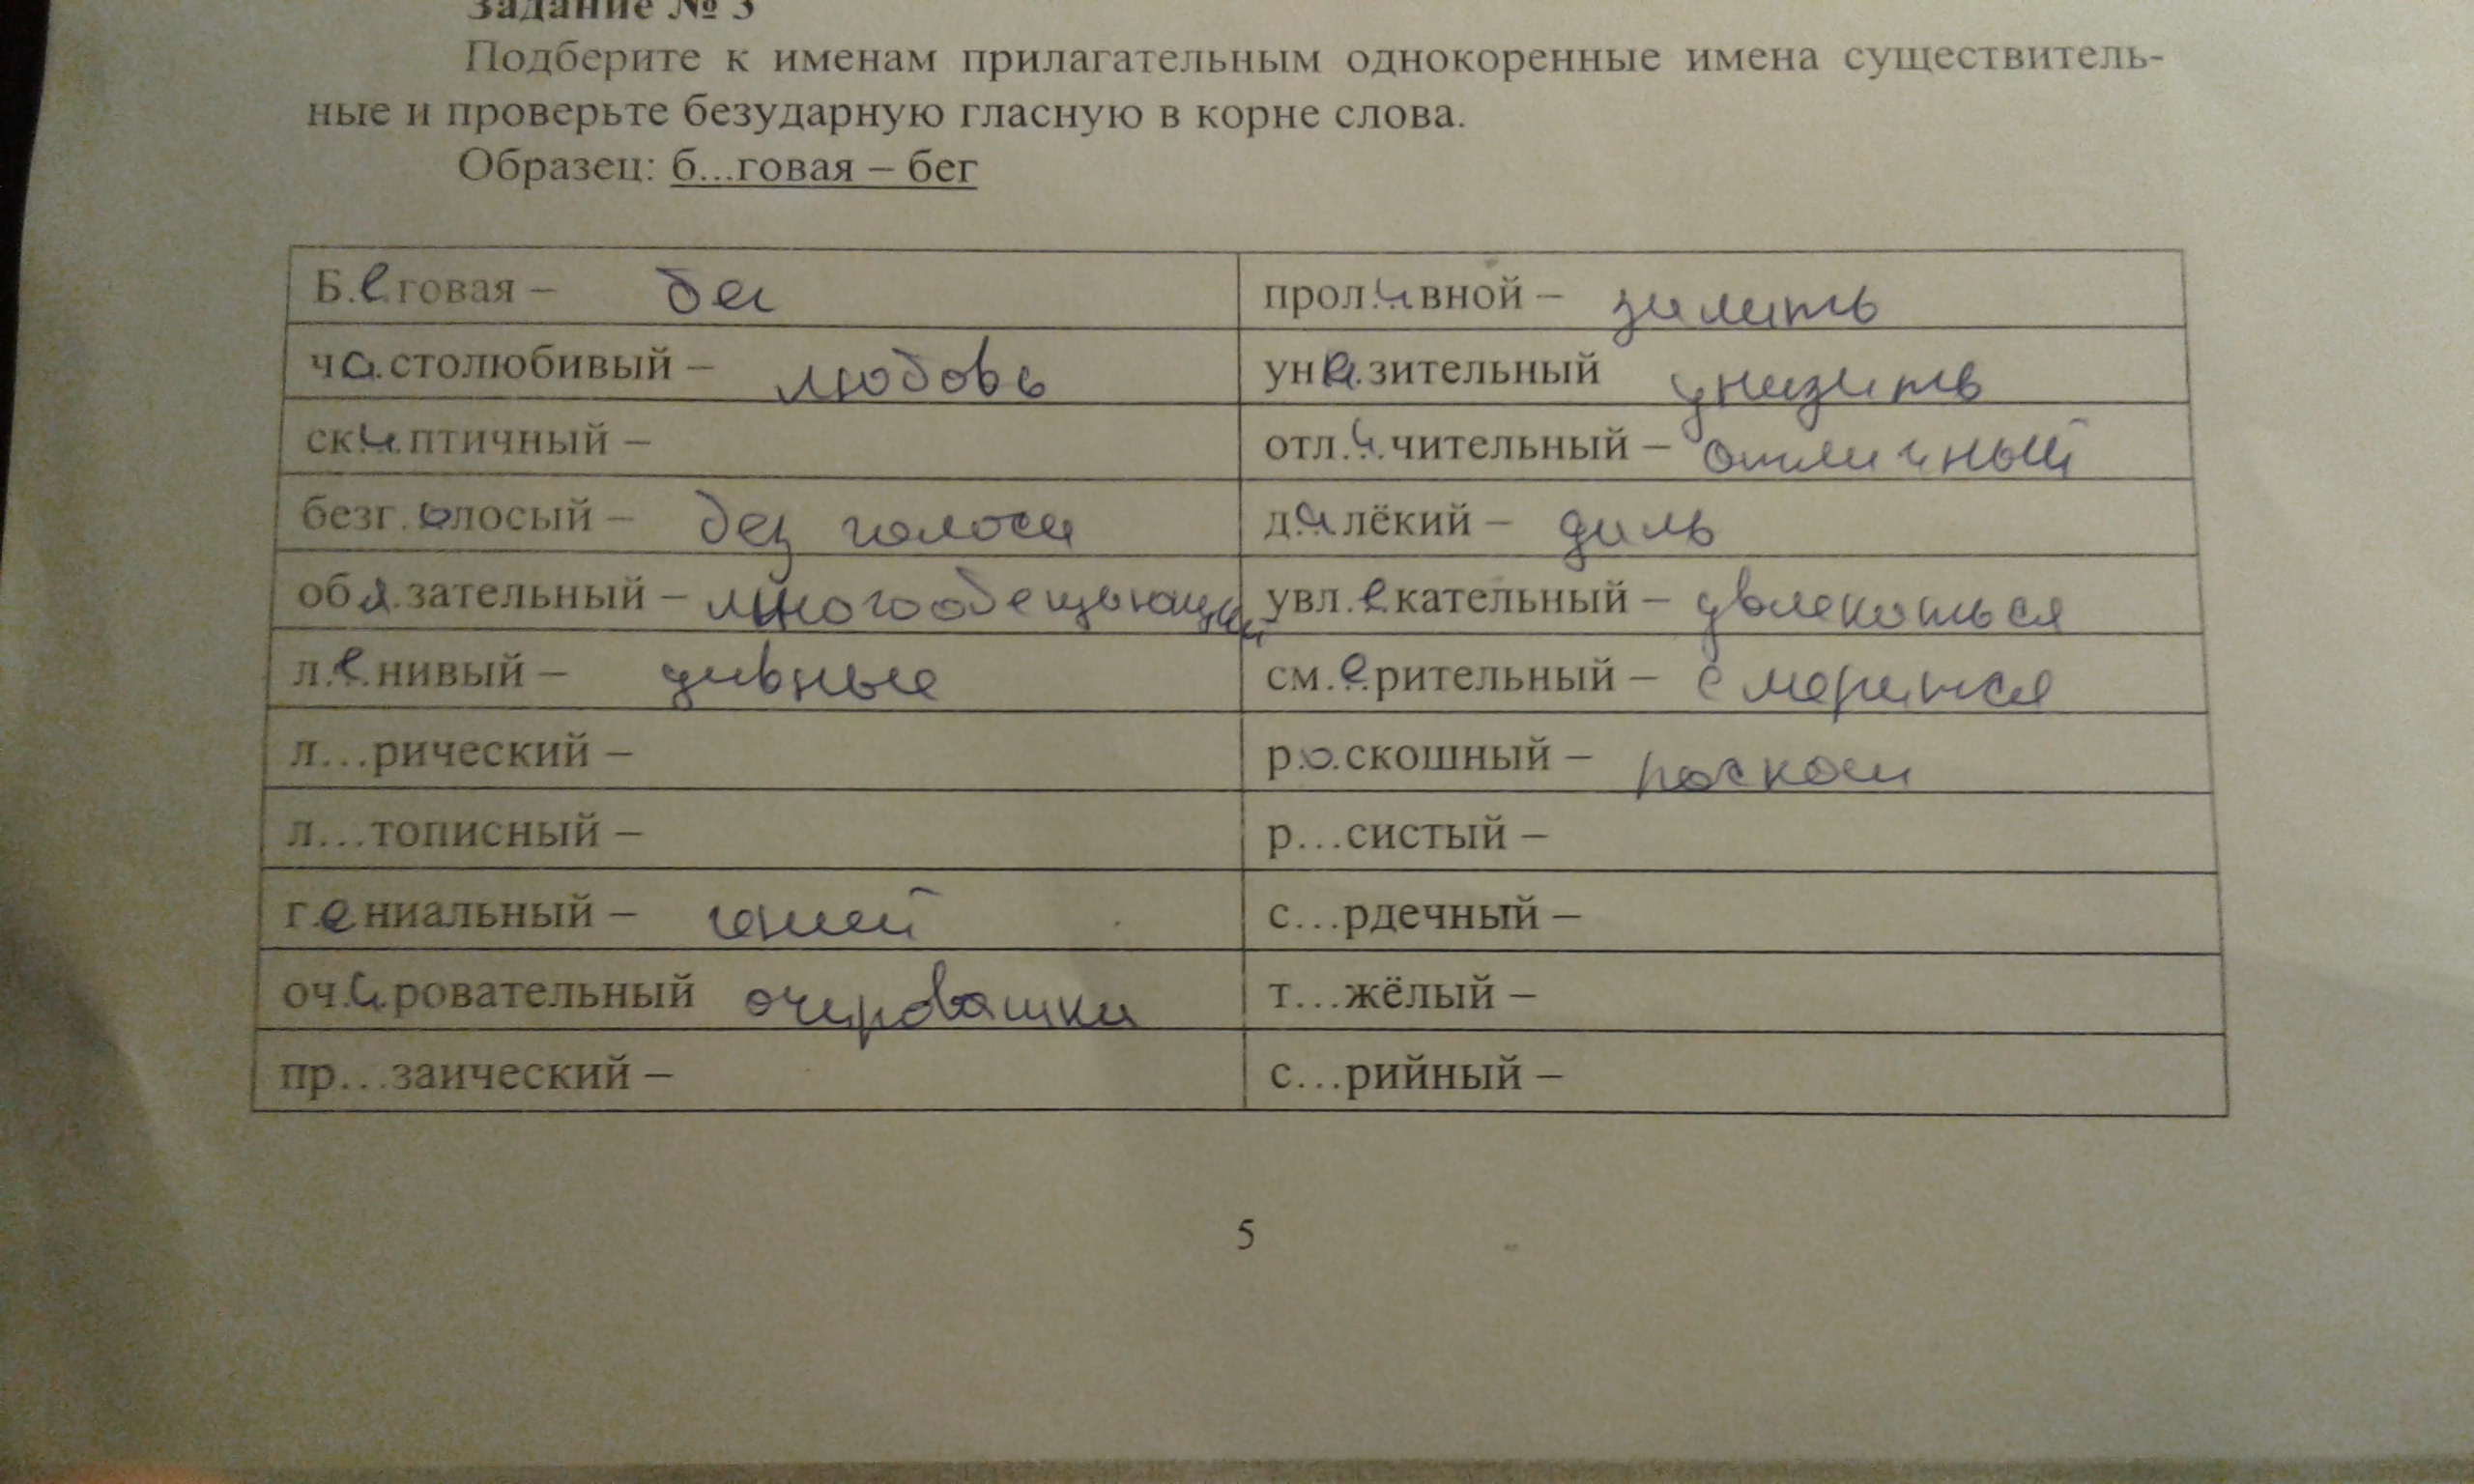 Задание № 3
Подберите к именам прилагательным однокоренные имена существитель-
ные и проверьте безударную гласную в корне слова.
Образец: б...говая – бег
Б.е.говая – бег
прол.и.вной – залить
ча.столюбивый – любовь
уни.зительный унизить
ск.и.птичный –
отл.и.чительный – отличный
безг.олосый – без голоса
д.а.лёкий – даль
обя.зательный – многообещающий
увл.е.кательный – увлекаться
л.е.нивый –
см.е.рительный –
л...рический –
р.о.скошный – роскош
л...тописный –
р...систый –
г.е.ниальный – гений
с...рдечный –
оч.а.ровательный очаровашки
т...жёлый –
пр...заический –
с...рийный –
5